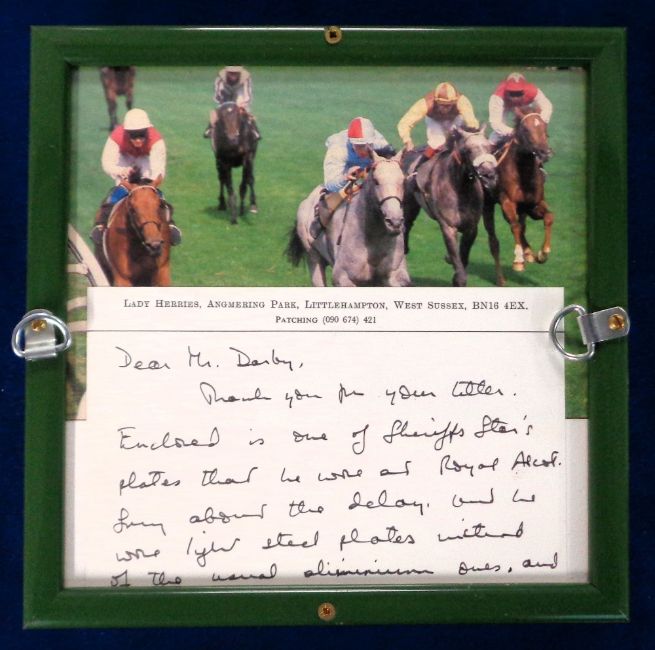 Lady Herries, Angmering Park, Littlehampton, West Sussex, BN16 4EX.
Patching (090 674) 421
Dear Mr. Darby,
Thank you for your letter.
Enclosed is one of Sheriffs Star's
plates that he wore at Royal Ascot.
Sorry about the delay, and he
wore light steel plates instead
of the usual aliminium ones, and